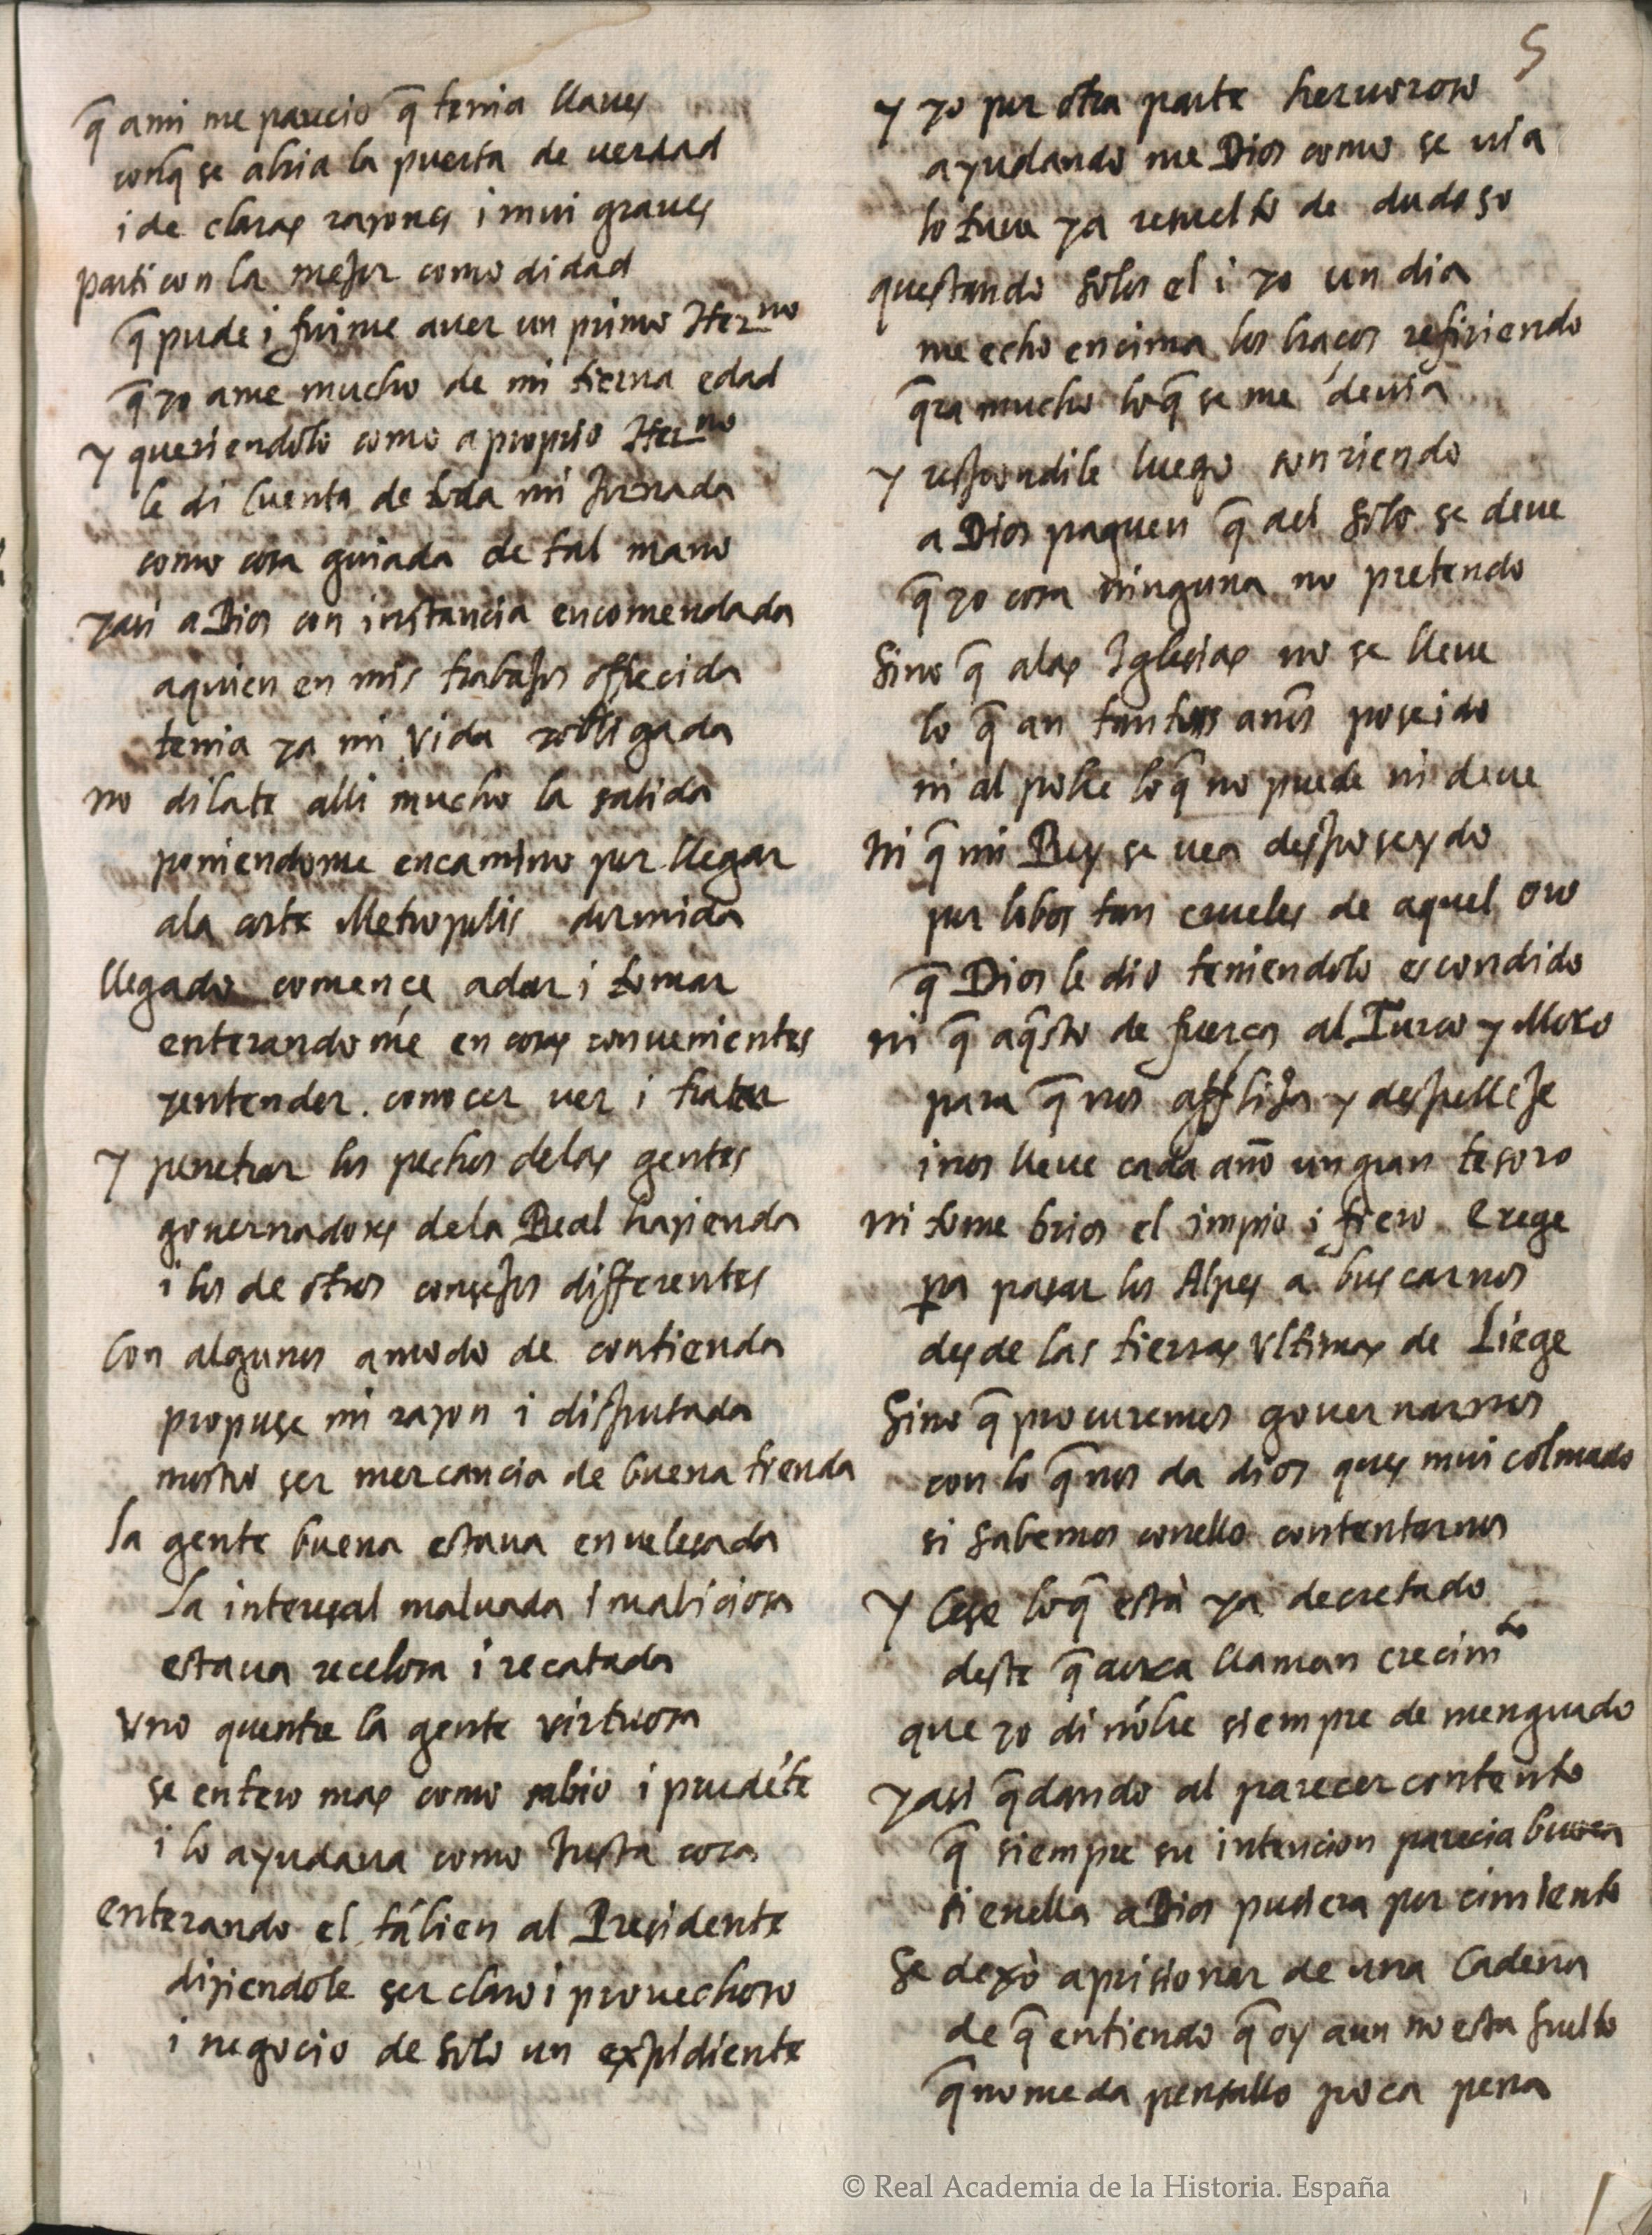 5
q̃ ami me parecio q̃ tenia llaues
conq̃ se abria la puerta de uerdad
i de claras razones i mui graues
parti con la mejor como didad
q̃ pude i fuime auer un primo Herno
q̃ yo ame mucho de mi tierna edad
y queriendolo como a proprio Herno
le di cuenta de toda mi jornada
como cosa guiada de tal mano
yasi a Dios con instancia encomendada
aquien en mis trabajos offrecida
tenia ya mi vida yobligada
no dilate alli mucho la salida
poniendome encamino por llegar
ala corte Metropolis dormida
llegado comence adar i tomar
enterandome en cosas conuenientes
yentender. conocer uer i tratar
y penetrar los pechos delas gentes
gouernadores dela Real hazienda
i los de otros consejos differentes
Con algunos amodo de contienda
propuse mi razon i disputada
mostro ser mercancia de buena tienda
la gente buena estaua enuelesada
la interesal maluada i maliciosa
estaua recelosa i recatada
vno quentre la gente virtuosa
se entero mas como sabio i prudẽte
i lo ayudaua como justa cosa
enterando el tãbien al Presidente
diziendole ser claro i prouechoso
i negocio de solo un expidiente
y yo por otra parte heruoroso
ayudando me Dios como se uia
lo tuue ya resuelto de dudoso
questando solos el i yo un dia
me echo encima los braços refiriendo
q̃ra mucho loq̃ se me deuia
y respondile luego sonriendo
a Dios paguen q̃ ael solo se deue
q̃ yo cosa ninguna no pretendo
Sino q̃ alas Iglesias no se lleue
lo q̃ an tantos años poseido
ni al pobre loq̃ no puede ni deue
Ni q̃ mi Rey se uea desposeydo
por lobos tan crueles de aquel oro
q̃ Dios le dio teniendolo escondido
ni q̃ aq̃sto de fuerças al Turco y Moro
para q̃ nos afflija y despelleje
i nos lleue cada año un gran tesoro
ni tome brios el impio i fiero Erege
pa pasar los Alpes a buscarnos
desde las tierras vltimas de Liege
Sino q̃ procuremos gouernarnos
con lo q̃ nos da dios ques mui colmado
si sabemos conello contentarnos
Y Cese loq̃ està ya decretado
deste q̃ acca llaman crecimto
que yo di nõbre siempre de menguado
yasi q̃dando al parecer contento
q̃ siempre su intencion parecia buena
si enella a Dios pusiera por cimiento
Se dexò aprisionar de una Cadena
de q̃ entiendo q̃ oy aun no esta suelto
q̃ nome da pensallo poca pena
© Real Academia de la Historia. España